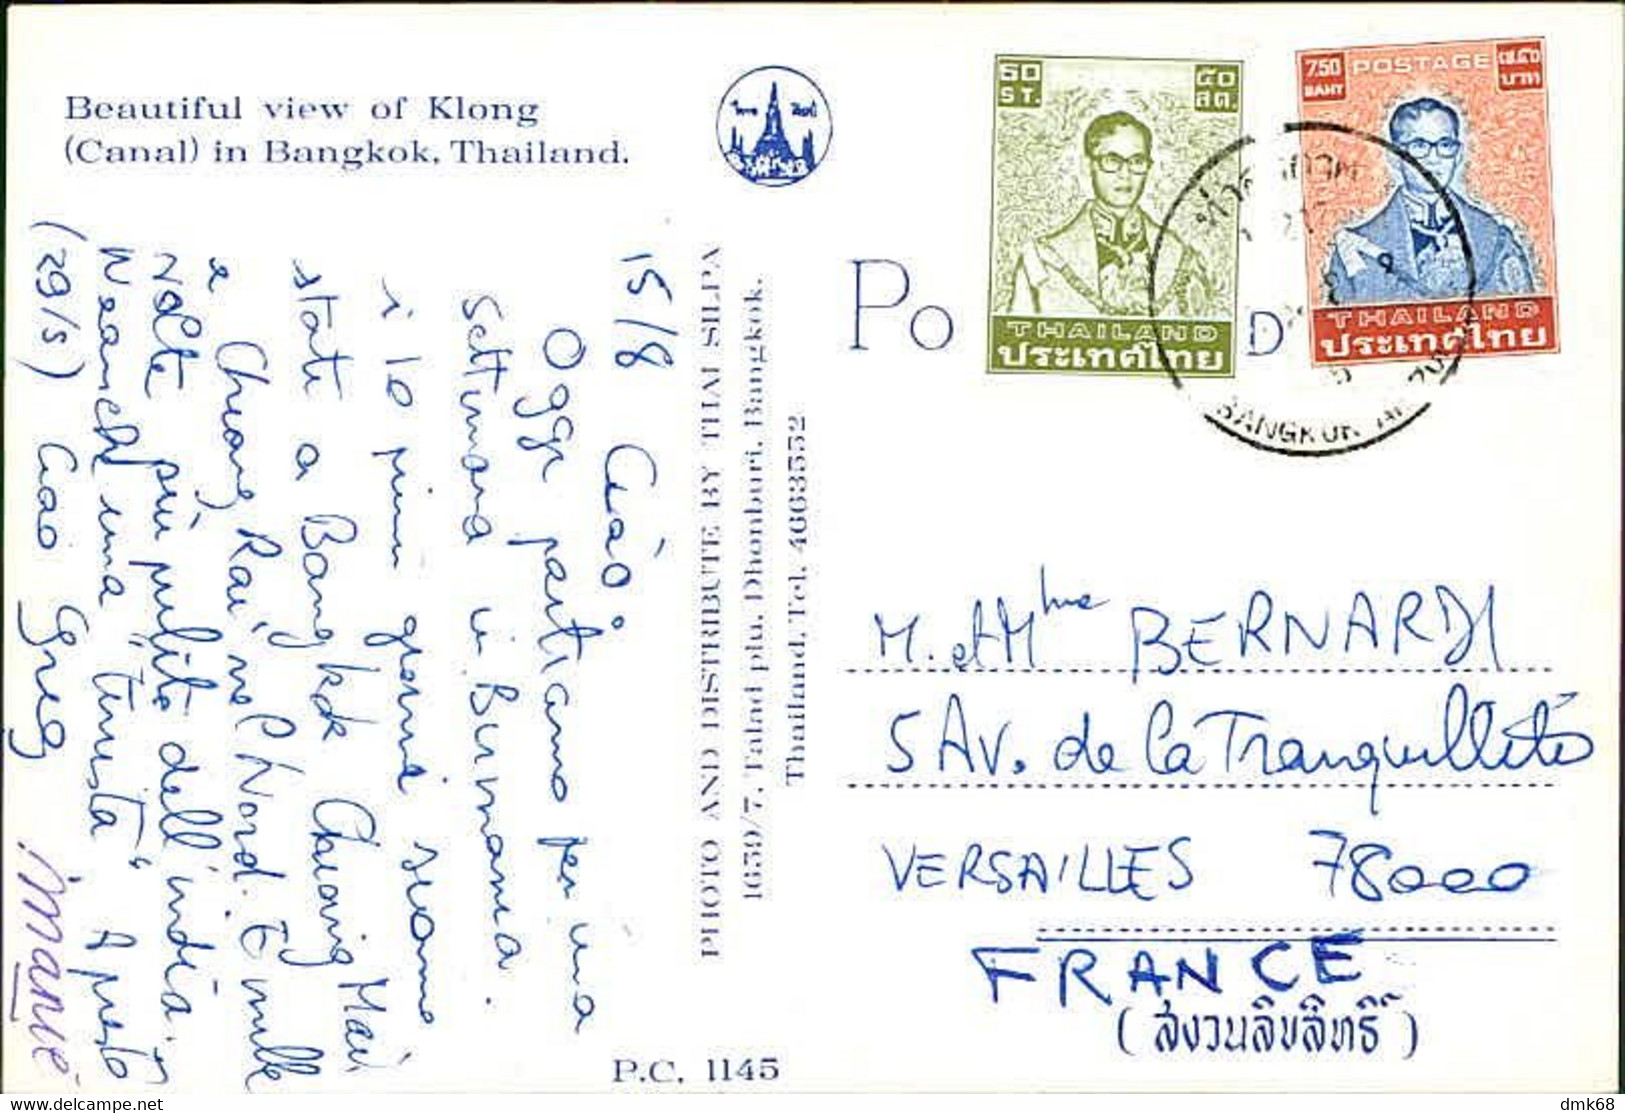 Beautiful view of Klong
(Canal) in Bangkok, Thailand.
15/8 Ciào!
Oggi partiamo per una
settimana in Burmania.
i 10 primi giorni siamo
stati a Bangkok Chiang Mai
e Chiang Rai, nel Nord. È mille
volte più pulito dell'india.
Neanche una "turista" A presto
(29/8) Ciao Greg
Manie
PHOTO AND DISTRIBUTE BY THAI SILPA
1659/7, Talad plu, Dhonburi, Bangkok.
Thailand, Tel. 4663552
P.C. 1145
60
ST.
๕๐
สต.
THAILAND
ประเทศไทย
7.50
BAHT
POSTAGE
๗.๕๐
บาท
THAILAND
ประเทศไทย
BANGKOK
PO
D
M. et Mme BERNARDI
5 Av. de la Tranquillité
VERSAILLES 78000
FRANCE
(สงวนลิขสิทธิ์)
dmk68